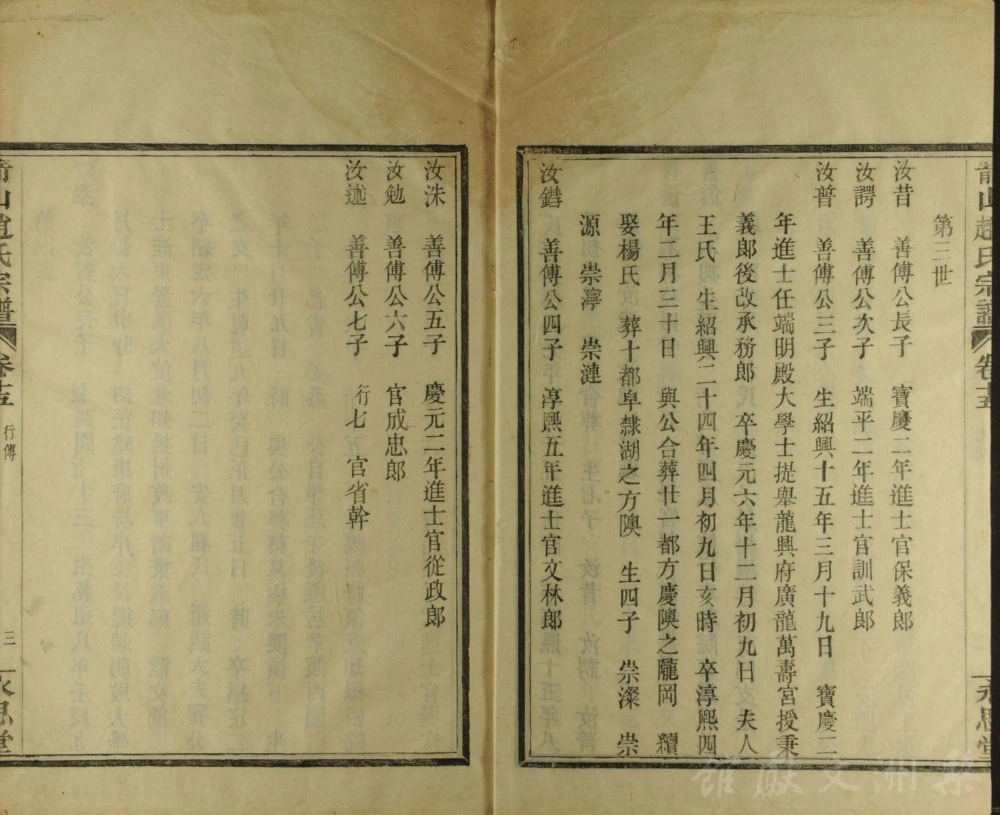 趙氏宗譜 卷十五 永思堂
第三世
汝昔 善傅公長子 寶慶二年進士官保義郎
汝諤 善傅公次子 端平二年進士官訓武郎
汝普 善傅公三子 生紹興十五年三月十九日 寶慶二
年進士任端明殿大學士提舉龍興府廣龍萬壽宮授秉
義郎後改承務郎 卒慶元六年十二月初九日 夫人
王氏 生紹興二十四年四月初九日亥時 卒淳熙四
年二月三十日 與公合葬廿一都方慶隩之隴岡 續
娶楊氏 葬十都皁隸湖之方隩 生四子 崇澯 崇
源 崇濘 崇漣
汝鐟 善傅公四子 淳熙五年進士官文林郎
汝洙 善傅公五子 慶元二年進士官從政郎
汝勉 善傅公六子 官成忠郎
汝迦 善傅公七子 行七 官省幹
山趙氏宗譜 卷十五 行傳 三 永思堂
株洲文獻館